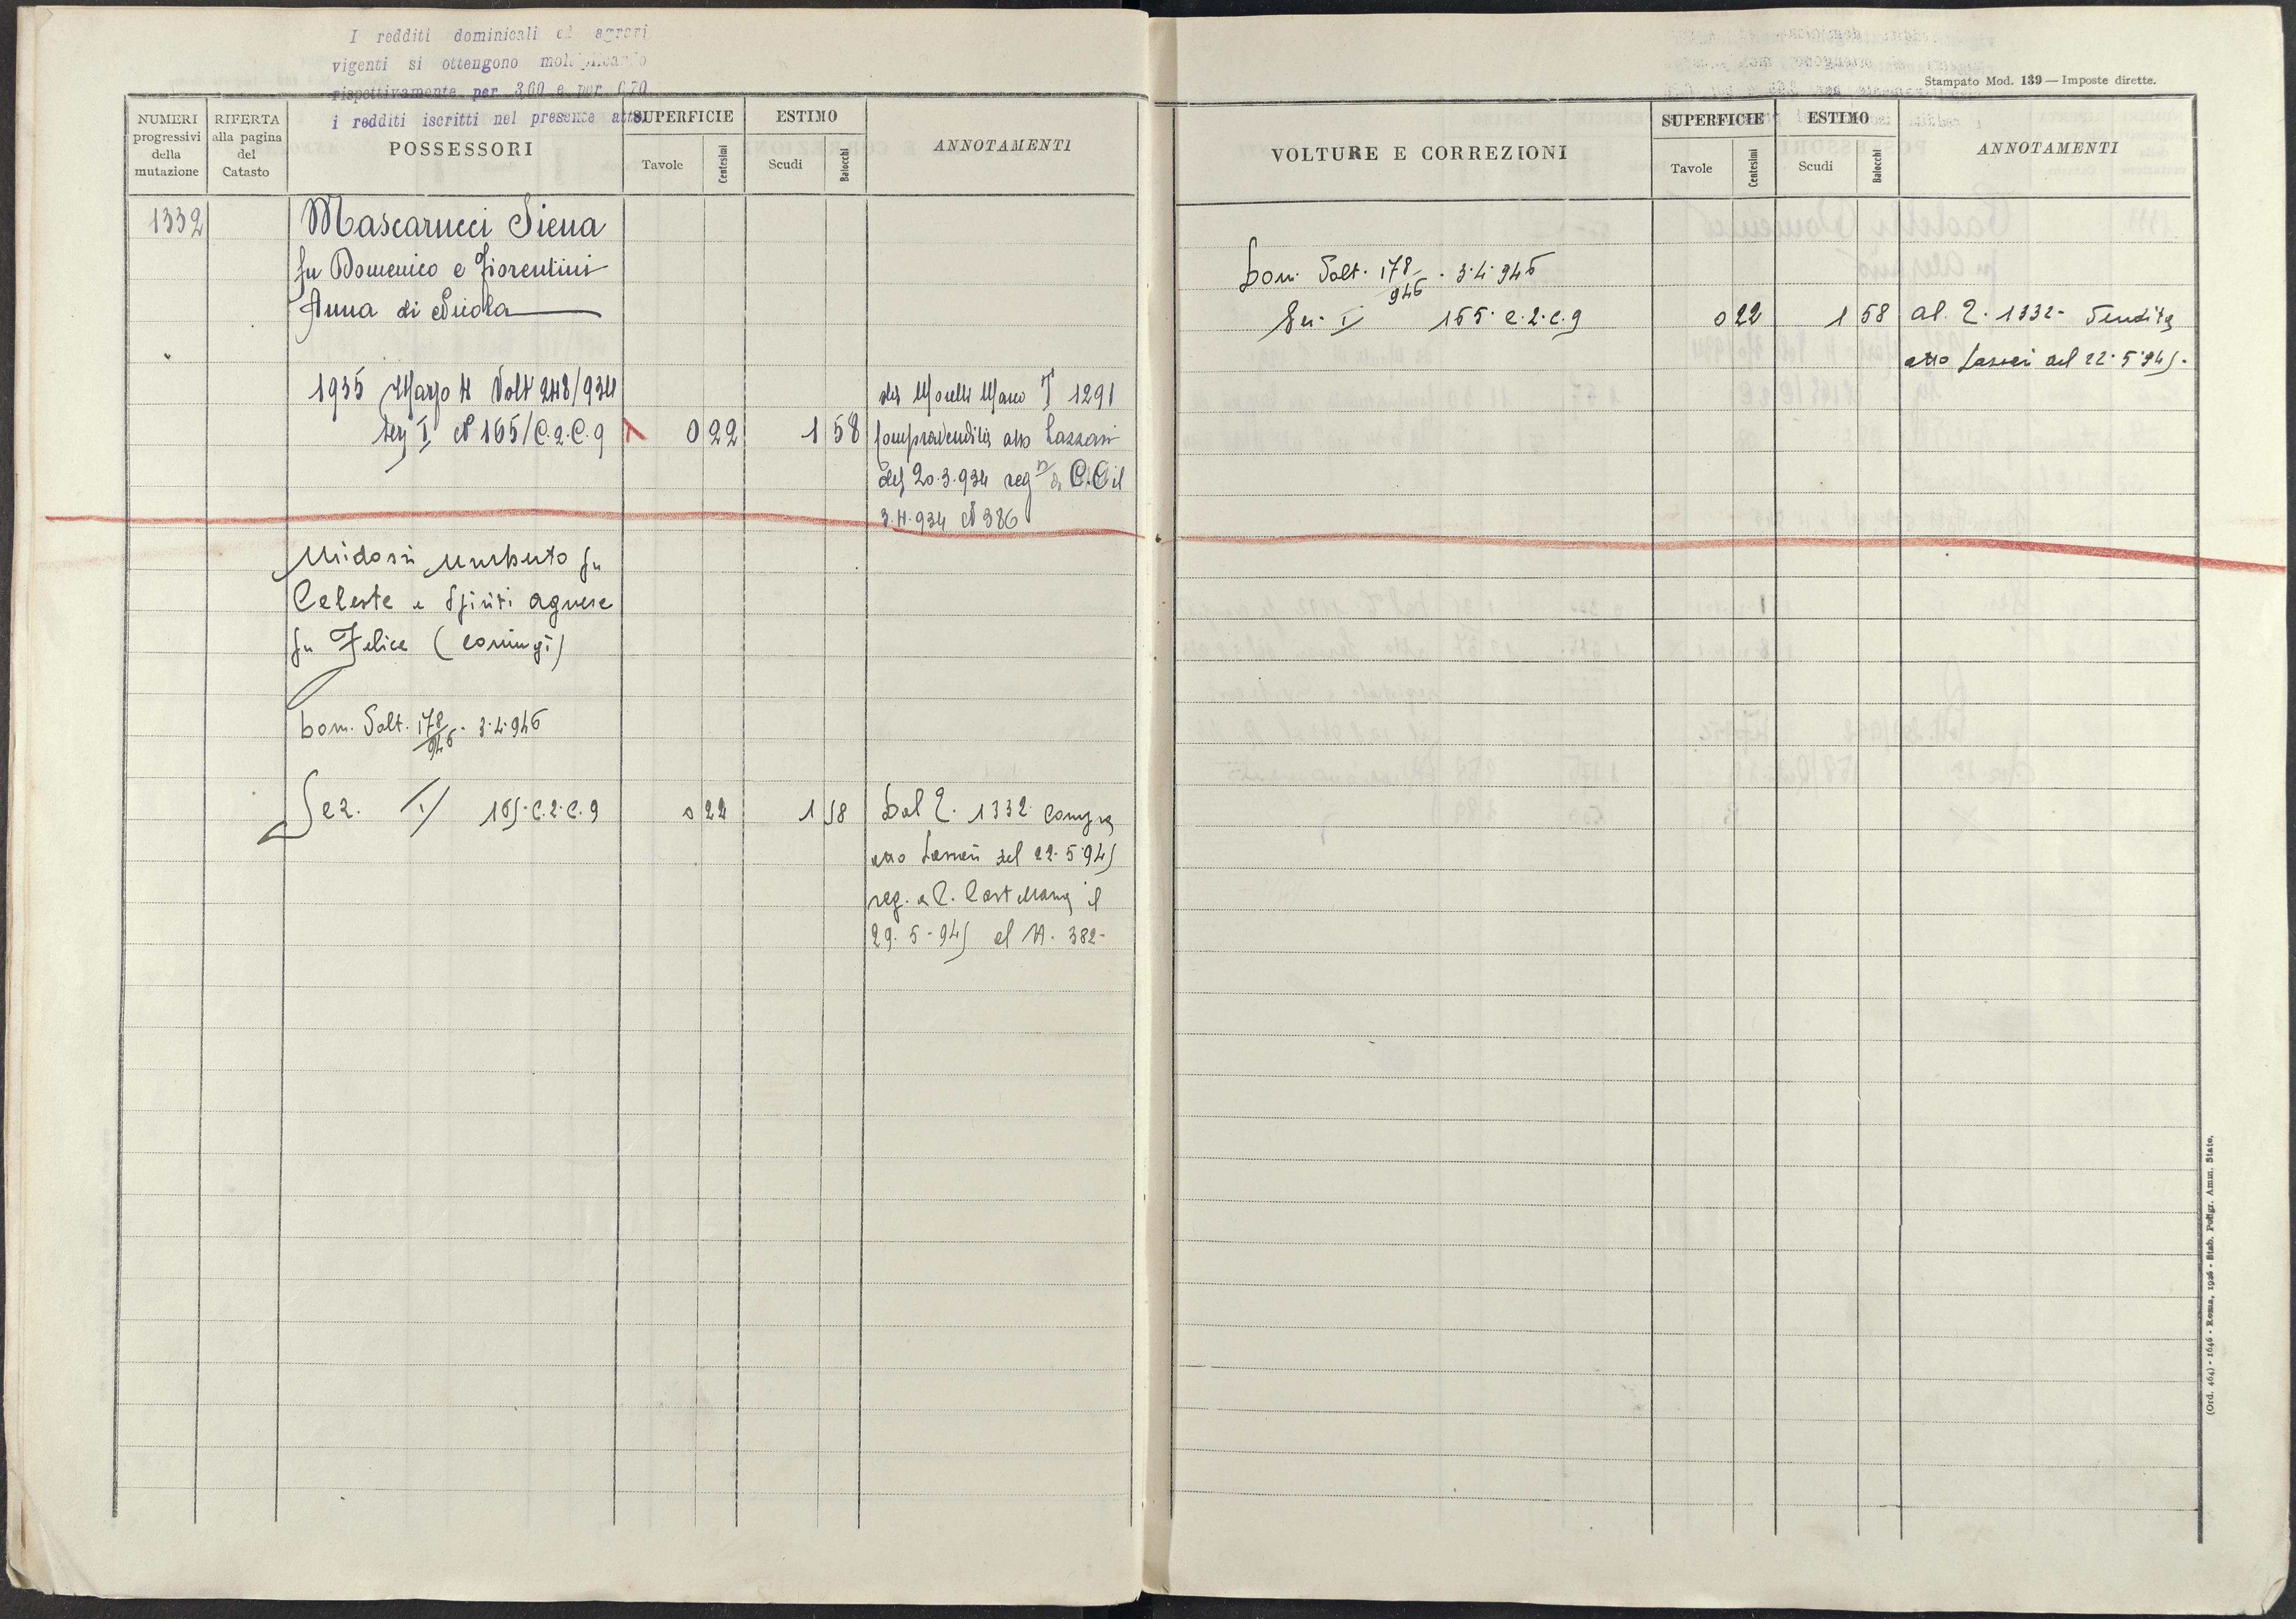 I redditi dominicali ed agrari
vigenti si ottengono moltiplicando
rispettivamente per 3,60 e per 6,70
i redditi iscritti nel presente atto.
NUMERI progressivi della mutazione
RIFERTA alla pagina del Catasto
POSSESSORI
SUPERFICIE
Tavole
Centesimi
ESTIMO
Scudi
Baiocchi
ANNOTAMENTI
1332
Mascarucci Siena
fu Domenico e Fiorentini
Anna di Nicola
1935 Marzo 4 Volt 248/934
Sez I N 165/C.2.C.9 0 22 1 58
da Morelli Marco T 1291
Compravendita atto Lazzari
del 20.3.934 reg a C.C il
3.4.934 N 386
Midossi Umberto fu
Celeste e Spiriti Agnese
fu Felice (coniugi)
Dom. Volt. 178/946 . 3.4.946
Sez. I 165.C.2.C.9 0 22 1 58
Dal P. 1332 Compra
atto del 22.5.945
reg. a C. Castellana il
29.5.945 al N. 382-
Stampato Mod. 139 — Imposte dirette.
VOLTURE E CORREZIONI
SUPERFICIE
Tavole
Centesimi
ESTIMO
Scudi
Baiocchi
ANNOTAMENTI
Dom. Volt. 178/946 . 3.4.946
Sez. I 165.C.2.C.9 0 22 1 58 al P. 1332- Vendita
atto del 22.5.945-
(Ord. 464) - 1646 - Roma, 1926 - Stab. Poligr. Amm. Stato.